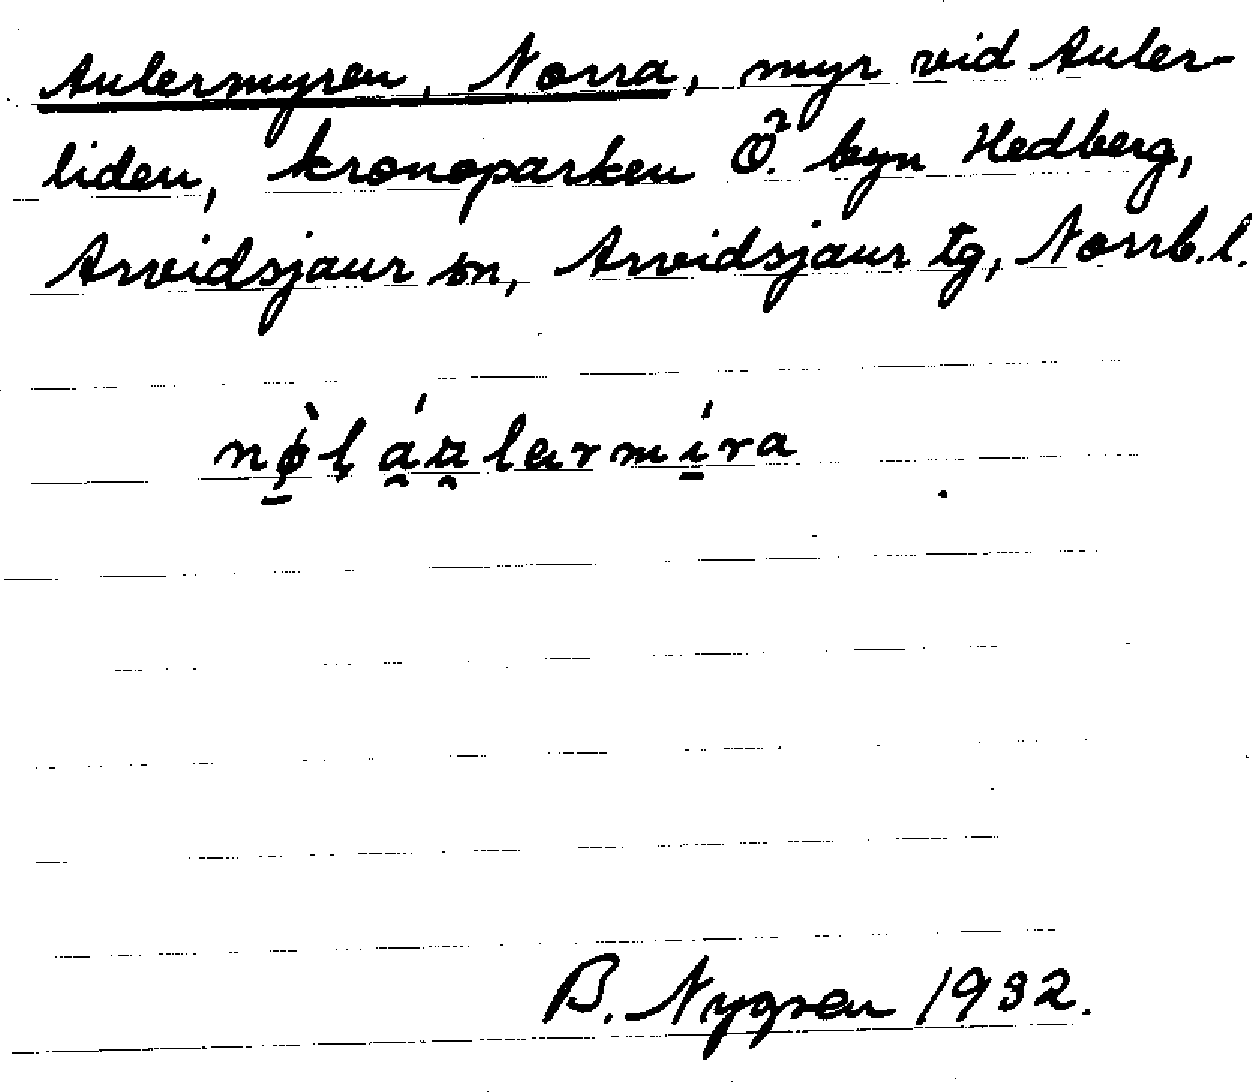 Aulermyren, Norra, myr vid Auler-
liden, kronoparken Ö. byn Hedberg,
Arvidsjaur sn, Arvidsjaur tg, Norrb.l.
B. Nygren 1932.